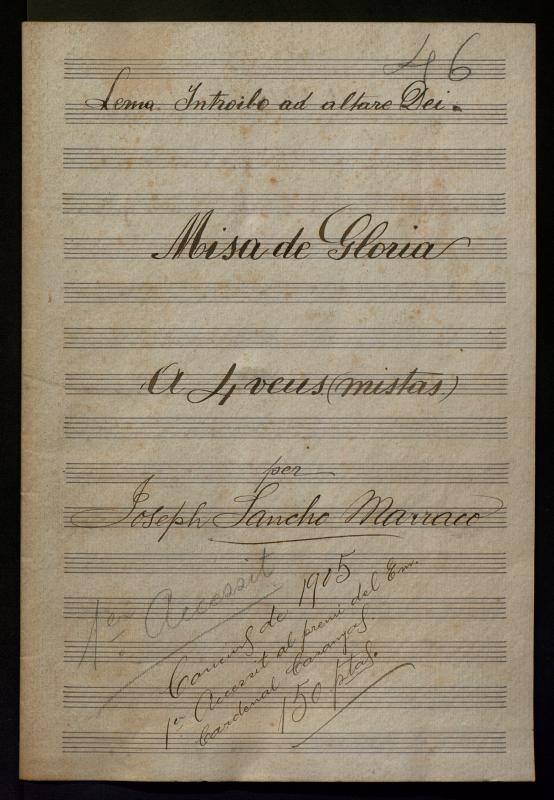 46
Lema. Introibo ad altare Dei.
Misa de Gloria
A 4 veus (mistas)
per
Joseph Sancho Marraco
1er Accessit
Concurs de 1905
1er Accessit al premi del Em.
Cardenal Casañas
150 ptas.